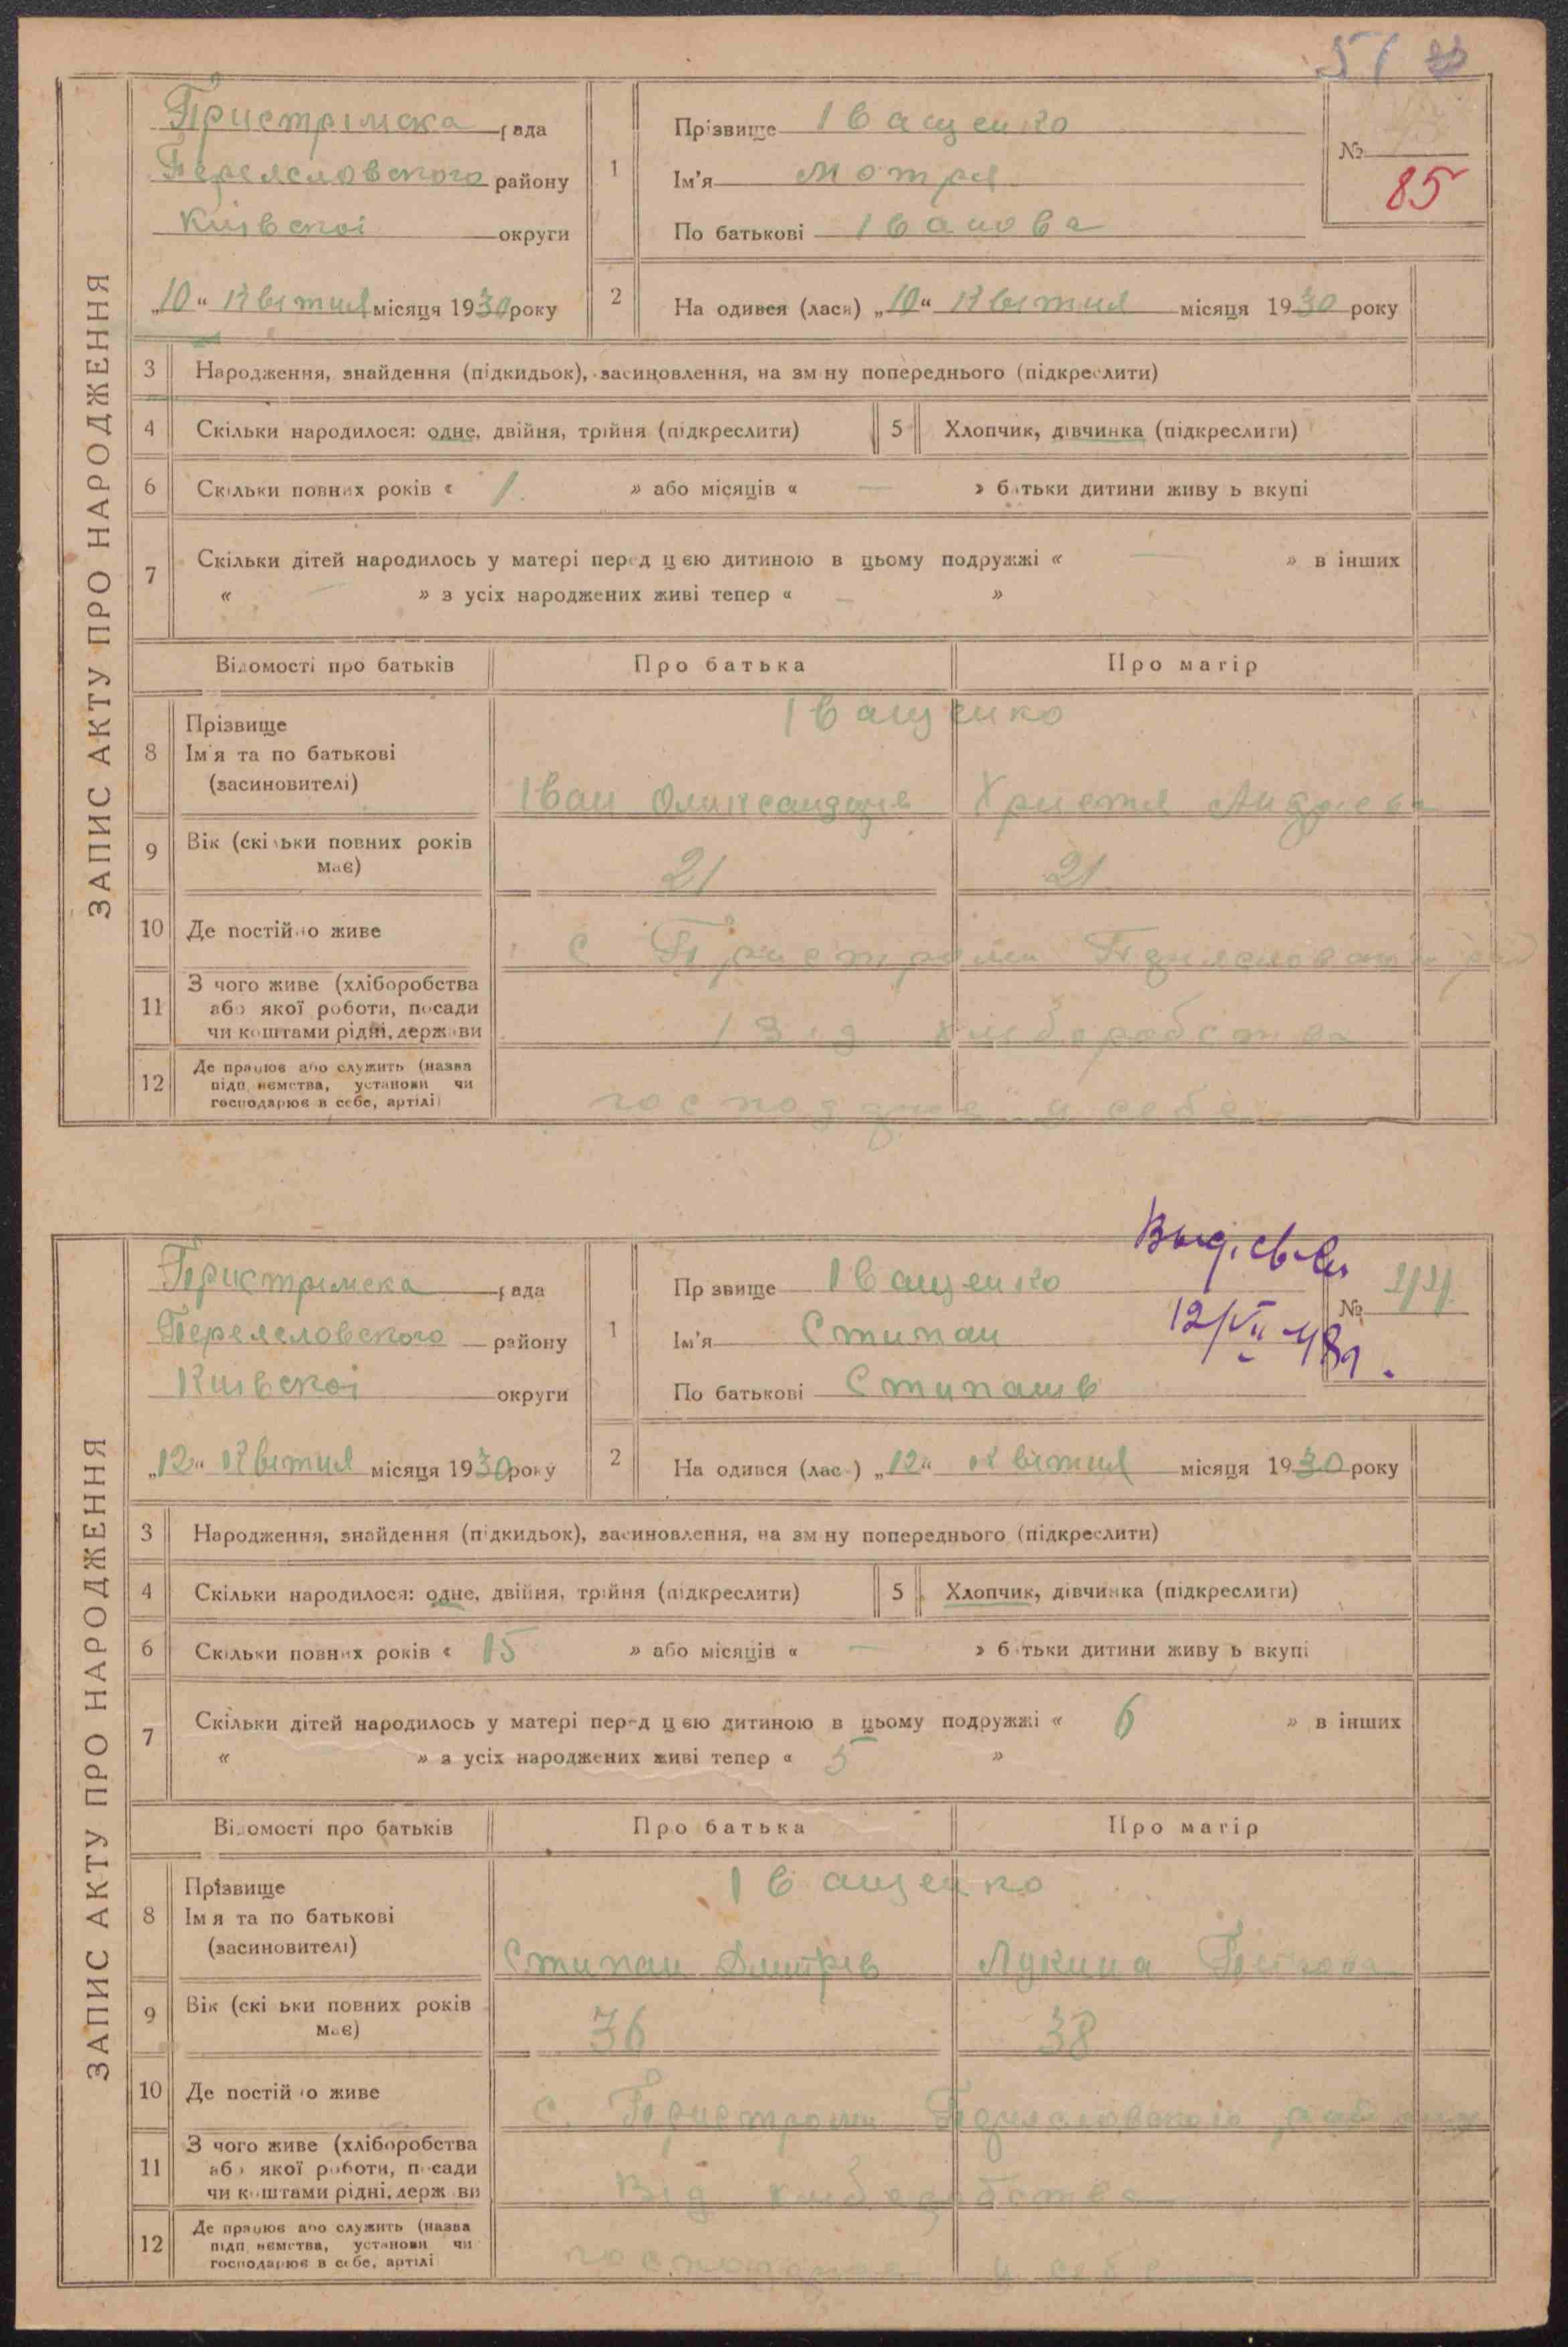 51
ЗАПИС АКТУ ПРО НАРОДЖЕННЯ
Пристрімска рада
Переяславского району
Київскої округи
„10“ Квітня місяця 1930 року
1 Прізвище Іващенко
Ім'я Мотря
По батькові Іванова
№ 85
2 На одився (лася) „10“ Квітня місяця 1930 року
3 Народження, знайдення (підкидьок), засиновлення, на зм ну попереднього (підкреслити)
4 Скільки народилося: одне, двійня, трійня (підкреслити) 5 Хлопчик, дівчинка (підкреслити)
6 Скільки повних років « 1 » або місяців « — » батьки дитини живу ь вкупі
7 Скільки дітей народилось у матері перед цією дитиною в цьому подружжі « — » в інших
« — » з усіх народжених живі тепер « — »
Відомості про батьків Про батька Про матір
8 Прізвище
Ім'я та по батькові
(засиновителі)
Іващенко
Іван Олександрів Христя Андрієва
9 Вік (скільки повних років має) 21 21
10 Де постійно живе с Пристроми Переяславский рай
11 З чого живе (хліборобства
або якої роботи, посади
чи коштами рідні, держави
Від хліборобства
12 Де працює або служить (назва
підп иємства, установи чи
господарює в себе, артілі)
господарює у себе
ЗАПИС АКТУ ПРО НАРОДЖЕННЯ
Выд. св-во
12/VII-48г.
Пристрімска рада
Переяславского району
Київскої округи
„12“ Квітня місяця 1930 року
1 Пр звище Іващенко
Ім'я Стипан
По батькові Стипанів
№
2 На одився (лас ) „12“ Квітня місяця 1930 року
3 Народження, знайдення (підкидьок), засиновлення, на зм ну попереднього (підкреслити)
4 Скільки народилося: одне, двійня, трійня (підкреслити) 5 Хлопчик, дівчинка (підкреслити)
6 Скільки повних років « 15 » або місяців « — » батьки дитини живу ь вкупі
7 Скільки дітей народилось у матері перед цією дитиною в цьому подружжі « 6 » в інших
« » з усіх народжених живі тепер « 5 »
Відомості про батьків Про батька Про матір
8 Прізвище
Ім'я та по батькові
(засиновителі)
Іващенко
Стипан Дмитрів Лукина
9 Вік (скі ьки повних років має) 36 38
10 Де постій о живе с. Пристроми Переяславского району
11 З чого живе (хліборобства
або якої роботи, посади
чи коштами рідні, держ ви
Від хліборобства
12 Де працює або служить (назва
підп иємства, установи чи
господарює в себе, артілі
господарює у себе